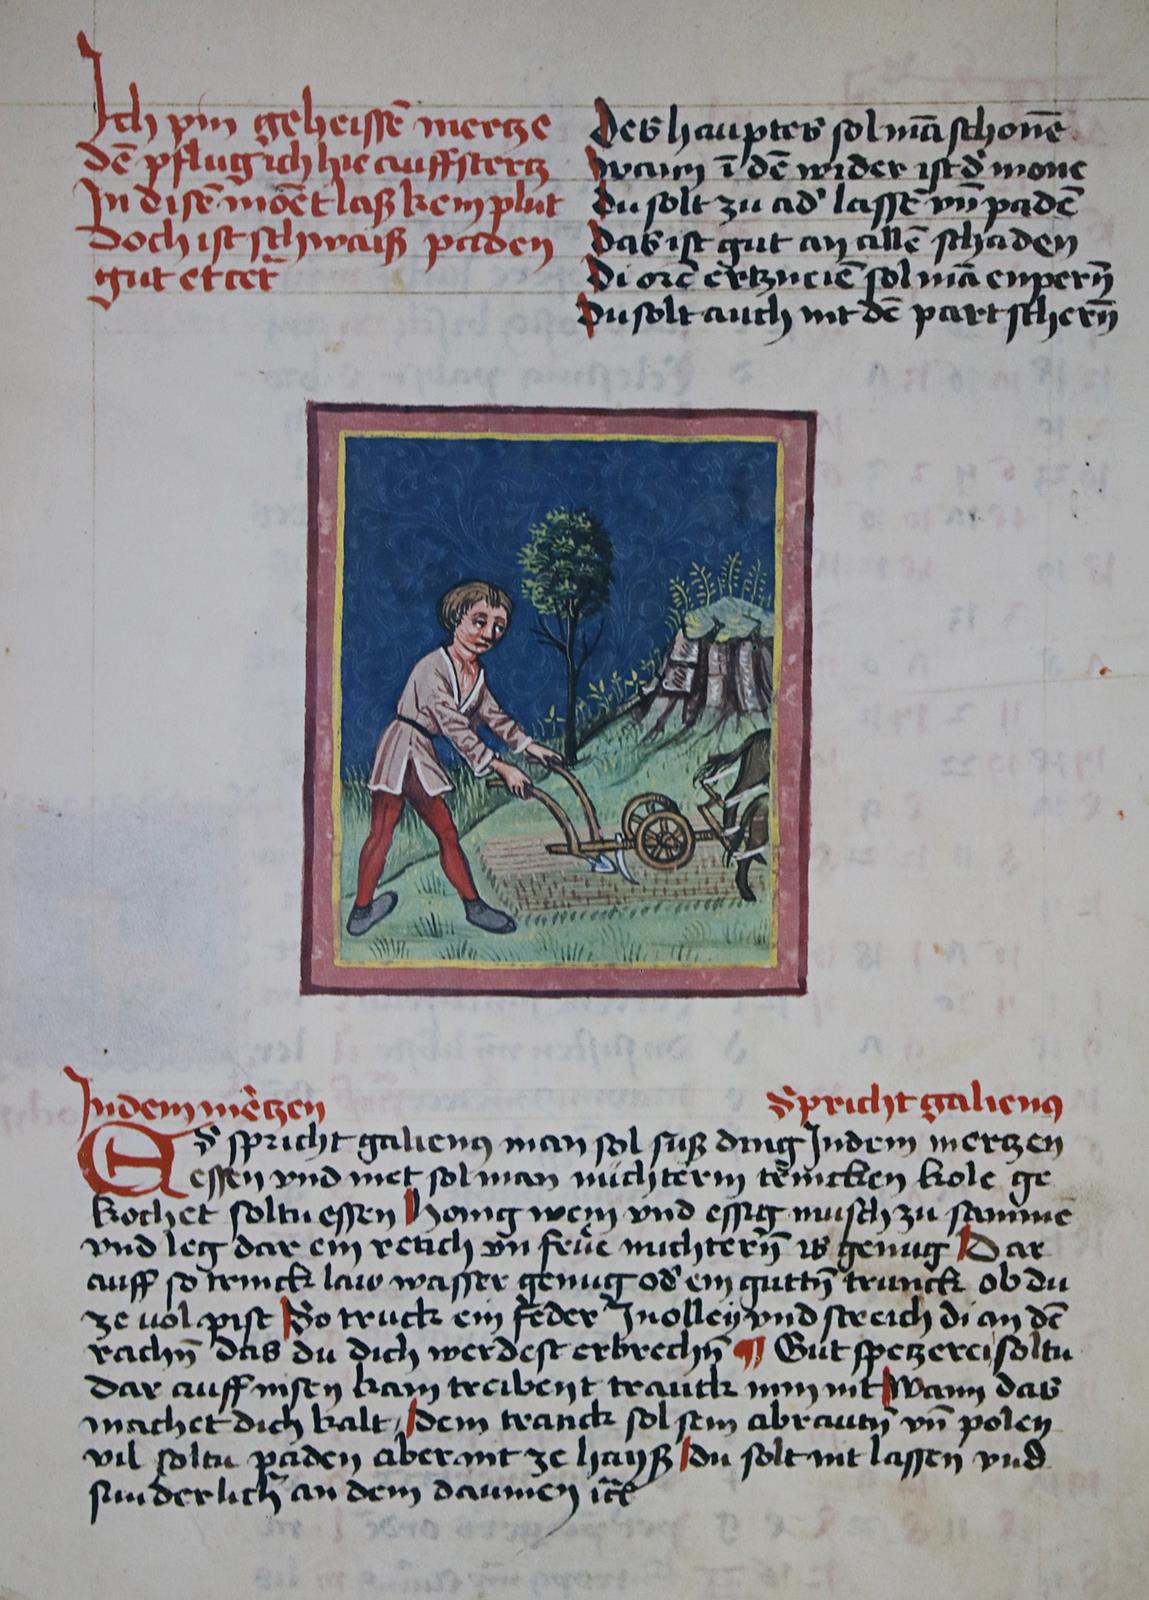 Ich pin geheissē mertze
dē pflug ich hie auffstertz
In disē monēt laß kein plut
Doch ist schwaiß paden
gut et cet̄
Des hauptes sol mā schonē
wann ī dē wider ist d' mone
Du solt zu ad' lassē vn̄ padē
Das ist gut an allē schaden
Di orē ertzneiē sol mā enpern̄
Du solt auch nit dē part schern̄
In dem mertzen
S' spricht galienꝰ
ES spricht galienꝰ man sol suß ding In dem mertzen
essen vnd met sol man nüchtern trincken kole ge
kochet soltu essen Honig wein vnd essig misch zu samme
vnd leg dar ein retich vn̄ nüchtern̄ is genug Dar
auff so trinck law wasser genug od' ein gutn̄ trunck ob du
ze vol pist So truck ein feder In olley vnd streich di an dē
rachn̄ das du dich werdest erbrechn̄ ¶ Gut spetzerei soltu
dar auff nisen kain treibent tranck nim nit Wann das
machet dich kalt / Dem tranck sol sein abrautn̄ vn̄ poley
vil soltu paden aber nit ze hayß du solt nit lassen vnd
sunderlich an dem daumen